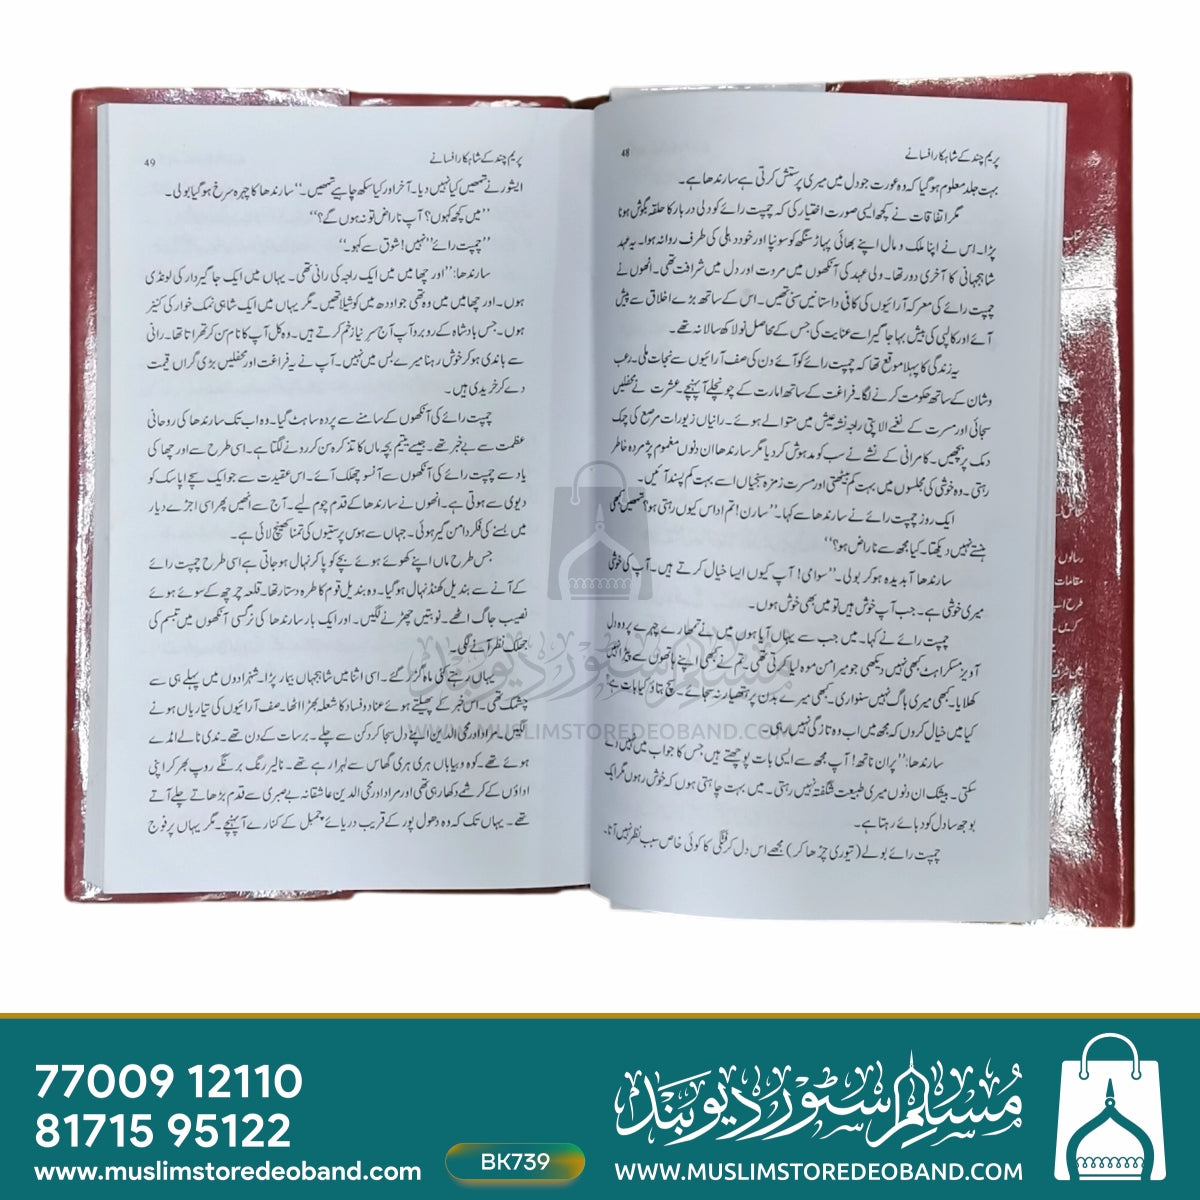 پریم چند کے شاہکار افسانے
48
بہت جلد معلوم ہو گیا کہ وہ عورت جو دل میں میری پرستش کرتی ہے سارندھا ہے۔
مگر اتفاقات نے کچھ ایسی صورت اختیار کی کہ چمپت رائے کو دلی دربار کا حلقہ بگوش ہونا
پڑا۔ اس نے اپنا ملک و مال اپنے بھائی پہاڑ سنگھ کو سونپا اور خود دہلی کی طرف روانہ ہوا۔ یہ عہد
شاہجہانی کا آخری دور تھا۔ ولی عہد کی آنکھوں میں مروت اور دل میں شرافت تھی۔ انھوں نے
چمپت رائے کی معرکہ آرائیوں کی کافی داستانیں سنی تھیں۔ اس کے ساتھ بڑے اخلاق سے پیش
آئے اور کالپی کی بیش بہا جاگیر اسے عنایت کی جس کے محاصل نو لاکھ سالانہ تھے۔
یہ زندگی کا پہلا موقع تھا کہ چمپت رائے کو آئے دن کی صف آرائیوں سے نجات ملی۔ رعب
و شان کے ساتھ حکومت کرنے لگا۔ فراغت کے ساتھ امارت کے چونچلے آ پہنچے۔ عشرت نے محفلیں
سجائی اور مسرت کے نغمے الاپتی راجہ نشہ عیش میں متوالے ہوئے۔ رانیاں زیورات مرصع کی چمک
دمک پر ریجھیں۔ کامرانی کے نشے نے سب کو مدہوش کر دیا مگر سارندھا ان دنوں مغموم پژمردہ خاطر
رہتی۔ وہ خوشی کی مجلسوں میں بہت کم بیٹھتی اور مسرت زمزمہ سنجیاں اسے بہت کم پسند آئیں۔
ایک روز چمپت رائے نے سارندھا سے کہا۔ ’’سارن! تم اداس کیوں رہتی ہو؟ تمھیں کبھی
ہنستے نہیں دیکھتا۔ کیا مجھ سے ناراض ہو؟‘‘
سارندھا آبدیدہ ہو کر بولی۔ ’’سوامی! آپ کیوں ایسا خیال کرتے ہیں۔ آپ کی خوشی
میری خوشی ہے۔ جب آپ خوش ہیں تو میں بھی خوش ہوں۔
چمپت رائے نے کہا۔ میں جب سے یہاں آیا ہوں میں نے تمھارے چہرے پر وہ دل
آویز مسکراہٹ کبھی نہیں دیکھی جو میرا من موہ لیا کرتی تھی۔ تم نے کبھی اپنے ہاتھوں سے بیڑا نہیں
کھلایا۔ کبھی میری پاگ نہیں سنواری۔ کبھی میرے بدن پر ہتھیار نہ سجائے۔ سچ بتاؤ کیا بات ہے؟
کیا میں خیال کروں کہ مجھ میں اب وہ تازگی نہیں رہی۔
سارندھا: ’’پران ناتھ! آپ مجھ سے ایسی بات پوچھتے ہیں جس کا جواب میں نہیں دے
سکتی۔ بیشک ان دنوں میری طبیعت شگفتہ نہیں رہتی۔ میں بہت چاہتی ہوں کہ خوش رہوں مگر ایک
بوجھ سا دل کو دبائے رہتا ہے۔
چمپت رائے بولے (تیوری چڑھا کر) مجھے اس دل گرفتگی کا کوئی خاص سبب نظر نہیں آتا۔
پریم چند کے شاہکار افسانے
49
ایشور نے تمھیں کیا نہیں دیا۔ آخر اور کیا سکھ چاہیے تمھیں۔‘‘ سارندھا کا چہرہ سرخ ہو گیا بولی۔
’’میں کچھ کہوں؟ آپ ناراض تو نہ ہوں گے؟‘‘
’’چمپت رائے‘‘ نہیں! شوق سے کہو۔‘‘
سارندھا: ’’اورچھا میں میں ایک راجہ کی رانی تھی۔ یہاں میں ایک جاگیردار کی لونڈی
ہوں۔ اورچھا میں میں وہ تھی جو اودھ میں کوشلیا تھیں۔ مگر یہاں میں ایک شاہی نمک خوار کی کنیز
ہوں۔ جس بادشاہ کے روبرو آپ آج سر نیاز خم کرتے ہیں۔ وہ کل آپ کا نام سن کر تھراتا تھا۔ رانی
سے باندی ہو کر خوش رہنا میرے بس میں نہیں۔ آپ نے یہ فراغت اور محفلیں بڑی گراں قیمت
دے کر خریدی ہیں۔
چمپت رائے کی آنکھوں کے سامنے سے پردہ سا ہٹ گیا۔ وہ اب تک سارندھا کی روحانی
عظمت سے بے خبر تھے۔ جیسے یتیم بچہ ماں کا تذکرہ سن کر رونے لگتا ہے۔ اسی طرح سے اورچھا کی
یاد سے چمپت رائے کی آنکھوں سے آنسو چھلک آئے۔ اس عقیدت سے جو ایک سچے اپاسک کو
دیوی سے ہوتی ہے۔ انھوں نے سارندھا کے قدم چوم لیے۔ آج سے انھیں پھر اسی اجڑے دیار
میں بسنے کی فکر دامن گیر ہوئی۔ جہاں سے ہوس پرستیوں کی تمنا کھینچ لائی ہے۔
جس طرح ماں اپنے کھوئے ہوئے بچے کو پا کر نہال ہو جاتی ہے اسی طرح چمپت رائے
کے آنے سے بندیل کھنڈ نہال ہو گیا۔ وہ بندیل قوم کا طرہ دستار تھا۔ قلعہ چرچھ کے سوئے ہوئے
نصیب جاگ اٹھے۔ نوبتیں جھڑنے لگیں۔ اور ایک بار سارندھا کی نرگسی آنکھوں میں تبسم کی
جھلک نظر آنے لگی۔
یہاں رہتے کئی ماہ گزر گئے۔ اسی اثنا میں شاہجہاں بیمار پڑا۔ شہزادوں میں پہلے ہی سے
چشمک تھی۔ اس خبر کے پھیلتے ہوئے عناد و فساد کا شعلہ بھڑا اٹھا۔ صف آرائیوں کی تیاریاں ہونے
لگیں۔ مراد اور محی الدین اپنے دل سجا کر دکن سے چلے۔ برسات کے دن تھے۔ ندی نالے امڈے
ہوئے تھے۔ کوہ و بیاباں ہری ہری گھاس سے لہرا رہے تھے۔ نالیر رنگ برنگے روپ بھر کر اپنی
اداؤں کے کرشمے دکھا رہی تھی اور مراد اور محی الدین عاشقانہ بے صبری سے قدم بڑھاتے چلے آتے
تھے۔ یہاں تک کہ وہ دھول پور کے قریب دریائے چمبل کے کنارے آ پہنچے۔ مگر یہاں پر فوج
مسلم سٹور دیوبند
WWW.MUSLIMSTOREDEOBAND.COM
77009 12110
81715 95122
www.muslimstoredeoband.com
BK739
مسلم سٹور دیوبند
WWW.MUSLIMSTOREDEOBAND.COM